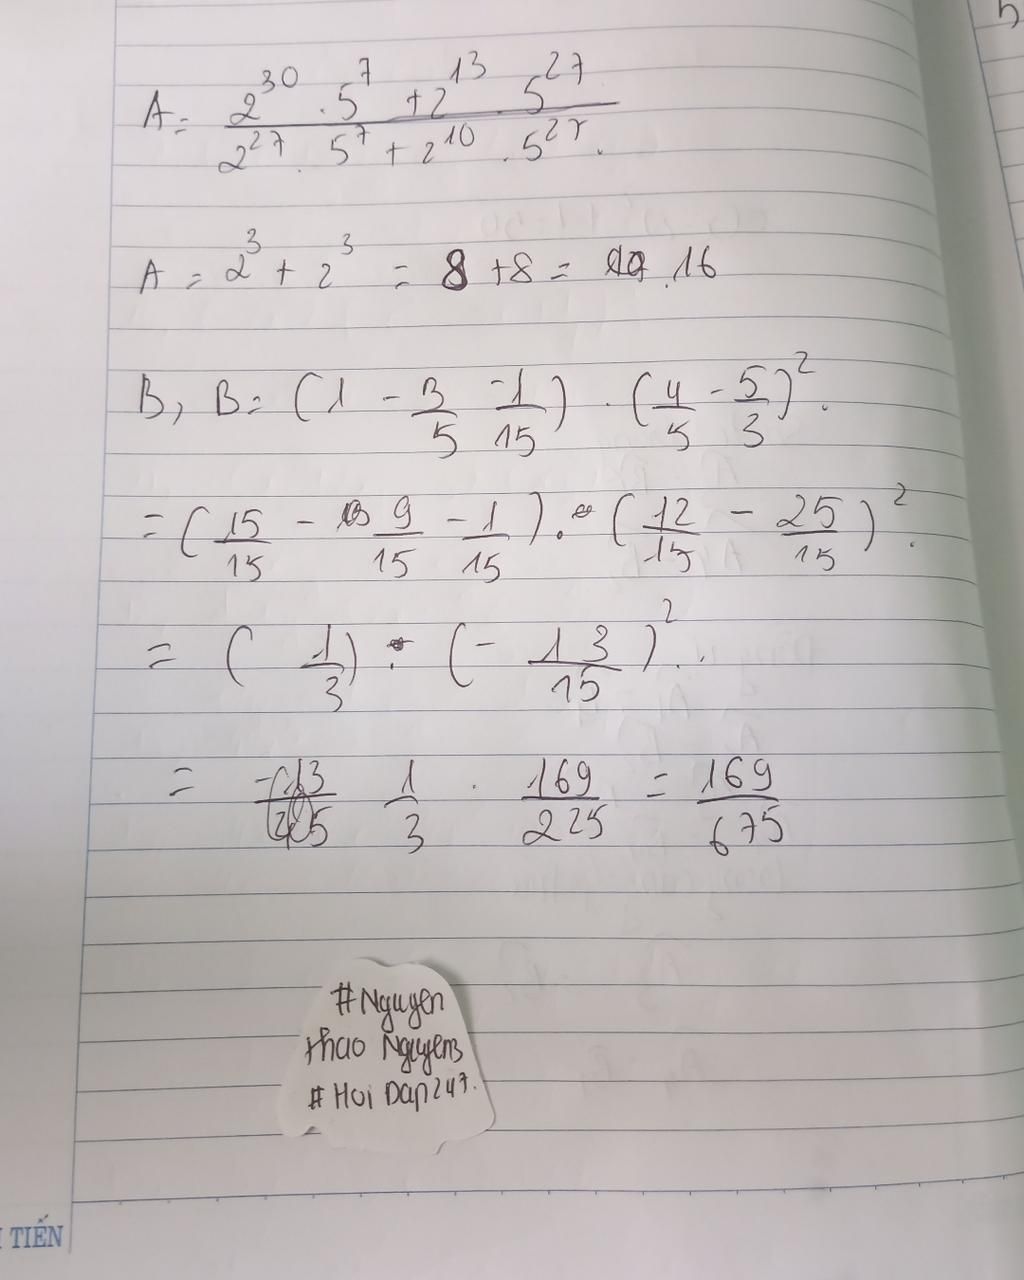 A = \frac{2^{30} . 5^7 + 2^{13} . 5^{27}}{2^{27} . 5^7 + 2^{10} . 5^{27}}.
A = 2^3 + 2^3 = 8 + 8 = 16
B, B = (1 - \frac{3}{5} - \frac{1}{15}) . (\frac{4}{5} - \frac{5}{3})^2.
= (\frac{15}{15} - \frac{9}{15} - \frac{1}{15}) . (\frac{12}{15} - \frac{25}{15})^2.
= (\frac{1}{3}) . (-\frac{13}{15})^2..
= \frac{1}{3} . \frac{169}{225} = \frac{169}{675}
#Nguyen
thao Nguyen3
# Hoi Dap247.
TIẾN